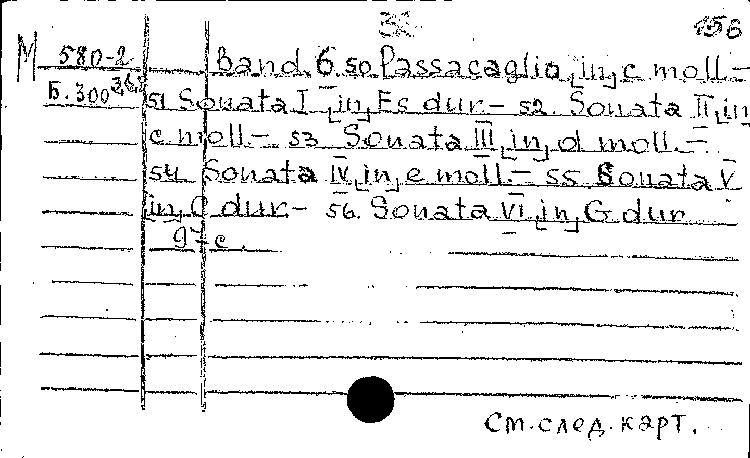 32. 156
M 580-2 Band. 6. 50. Passacaglia [in] c moll. –
Б. 300 3,6, 51 Sonata I [in] Es dur. – 52. Sonata II [in]
c moll. – 53 Sonata III [in] d moll. –
54 Sonata IV [in] e moll. – 55 Sonata V
[in] C dur. – 56. Sonata VI [in] G dur
97 c.
См. след. карт.